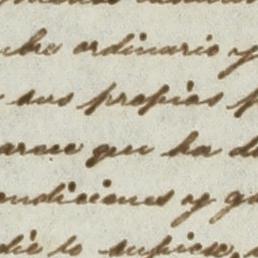 ordinario y
sus propias
arece que ha d
ondiciones y g
die lo supiese